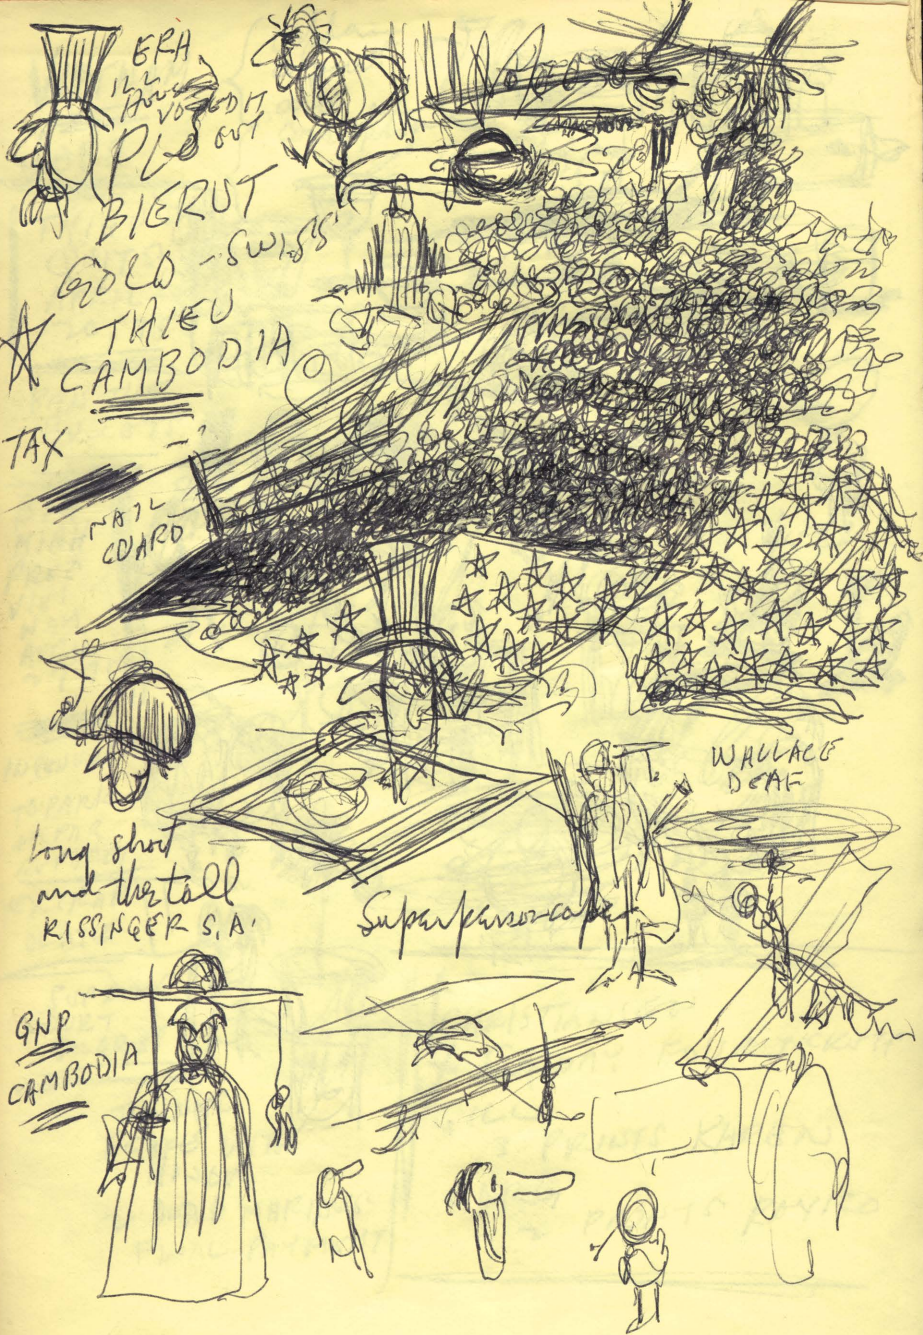 ERA
ILL
HAVE
VOTED IT
PLO OUT
BIERUT
GOLD - SWISS
THIEU
CAMBODIA
TAX
NAT'L
GUARD
WALLACE
DEAF
long short
and the tall
KISSINGER S.A.
Superpersoncape
GNP
CAMBODIA